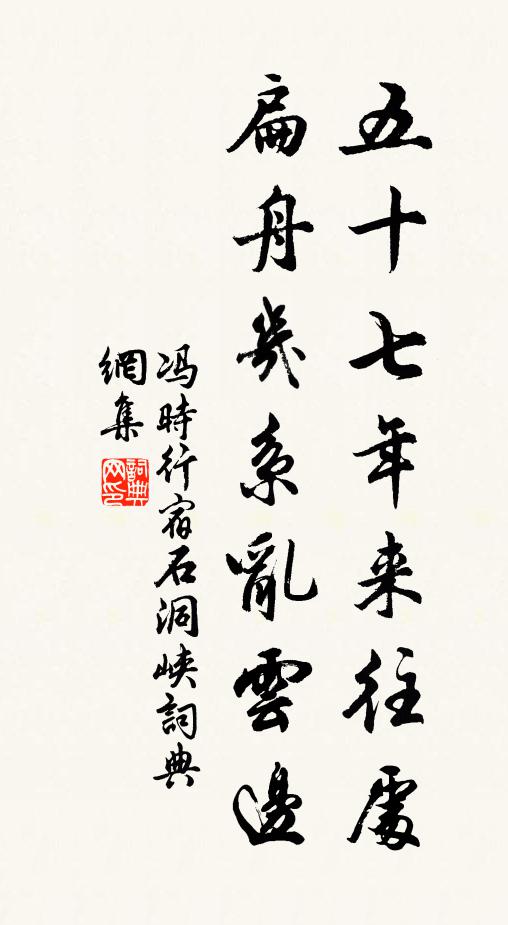 五十七年来往處
扁舟幾系亂雲邊
冯時行宿石洞峡詞典
網集
詞典网印